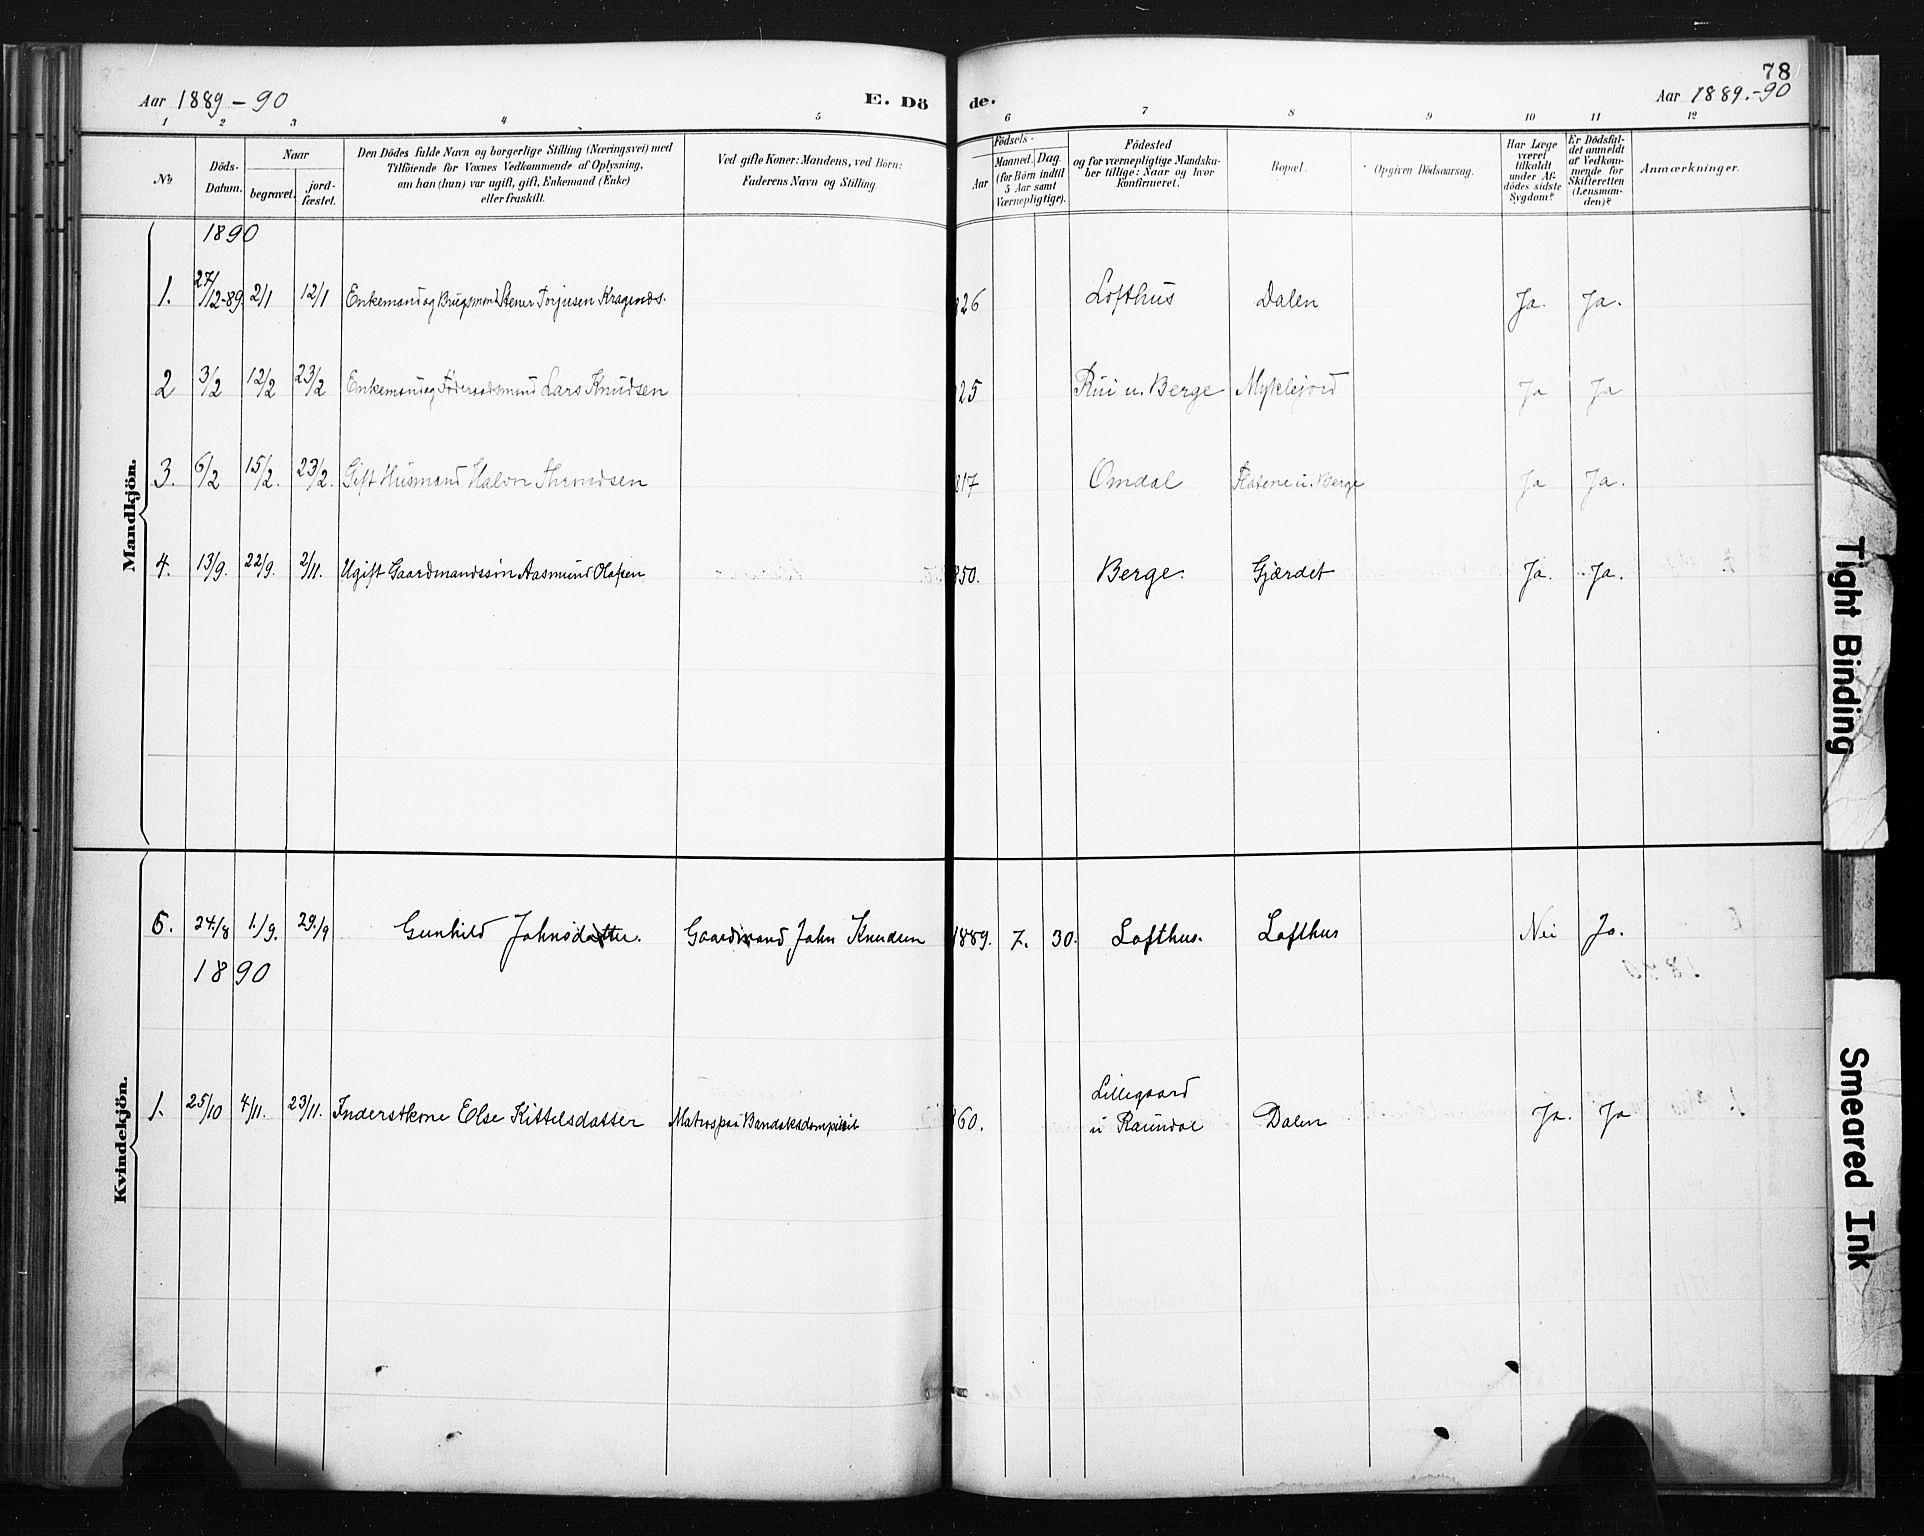 78
Aar 1889-90 E. Dö de. Aar 1889.-90
1 2 3 4 5 6 7 8 9 10 11 12
No
Döds-Datum.
Naar
begravet.
jord-fæstet.
Den Dödes fulde Navn og borgerlige Stilling (Næringsvei) med
Tilföiende for Voxnes Vedkommende af Oplysning,
om han (hun) var ugift, gift, Enkemand (Enke)
eller fraskilt.
Ved gifte Koner: Mandens, ved Börn:
Faderens Navn og Stilling.
Födsels-
Aar
Maaned. Dag.
(for Börn indtil
5 Aar samt
Værnepligtige).
Födested
og for værnepligtige Mandska-
ber tillige: Naar og hvor
konfirmeret.
Bopæl.
Opgiven Dödsaarsag.
Har Læge
været
tilkaldt
under Af-
dödes sidste
Sygdom?
Er Dödsfal-
det anmeldt
af Vedkom-
mende for
Skifteretten
(Lensman-
den)?
Anmærkninger.
Mandkjön.
1890
1. 27/12-89 2/1 12/1 Enkemand og Brugsmand Stener Torjusen Kragenæs. 826 Lofthus Dalen Ja. Ja.
2 3/2 12/2 23/2 Enkemand og Föderaadsmand Lars Knudsen 825 Rui u. Berge Myklejord Ja Ja
3. 6/2 15/2. 23/2. Gift Husmand Halvor 817 Omdal u. Berge Ja Ja.
4. 13/9. 22/9. 2/11. Ugift Gaardmandssön Aasmund Olafsen 850. Berge. Gjærdet Ja. Ja.
Kvindekjön.
5. 24/8 1./9. 29./9 Gunhild Johnsdatter. Gaardmand John Knudsen 1889. 7. 30. Lofthus. Lofthus Nei Ja.
1890
1. 25/10 4/11. 23/11. Inderstkone Else Kittelsdatter Matros paa 860. Lillegaard
u Raundal Dalen Ja. Ja
Tight Binding
Smeared Ink